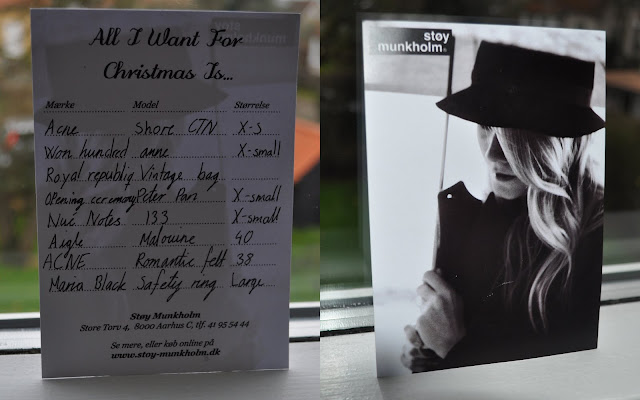 All I Want For
Christmas Is...
Mærke Model Størrelse
Acne Shore CTN X-S
Won hundred anne X-small
Royal republiq Vintage bag
Opening ceremony Peter Pan X-small
Nué Notes 133 X-small
Aigle Malouine 40
ACNE Romantic felt 38
Maria Black Safety ring Large
Støy Munkholm
Store Torv 4, 8000 Aarhus C, tlf. 41 95 54 44
Se mere, eller køb online på
www.stoy-munkholm.dk
støy
munkholm